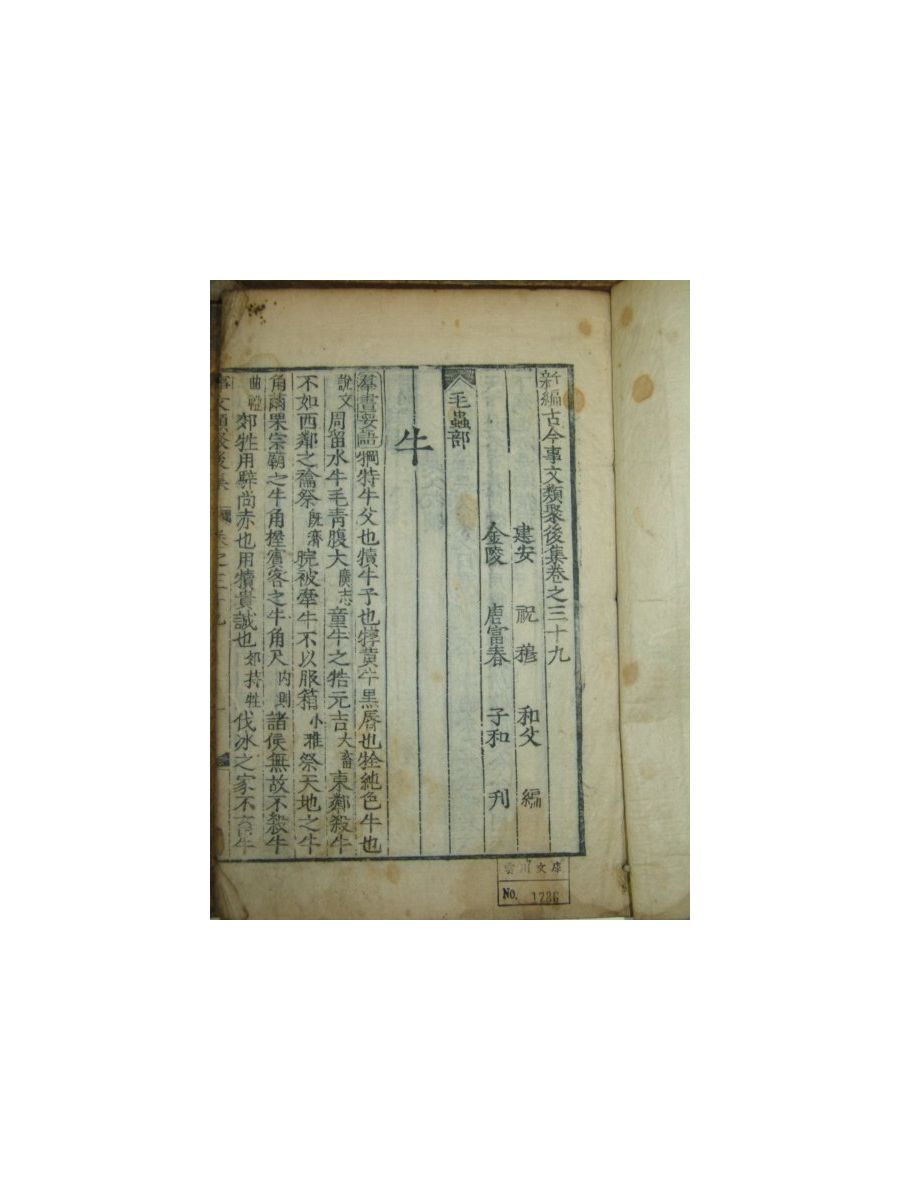 新編古今事文類聚後集卷之三十九
建安 祝穆 和父 編
金陵 唐富春 子和 刋
毛蟲部
牛
羣書要語 犅特牛父也犢牛子也犉黃牛黑唇也牷純色牛也
說文 周留水牛毛靑腹大 廣志 童牛之牿元吉 大畜 東鄰殺牛
不如西鄰之禴祭 旣濟 睆被牽牛不以服箱 小雅 祭天地之牛
角繭栗宗廟之牛角握賓客之牛角尺 內則 諸侯無故不殺牛
曲禮 郊牲用騂尚赤也用犢貴誠也 郊持牲 伐冰之家不畜牛
事文類聚後集 卷之三十九
雲川文庫
No. 1286